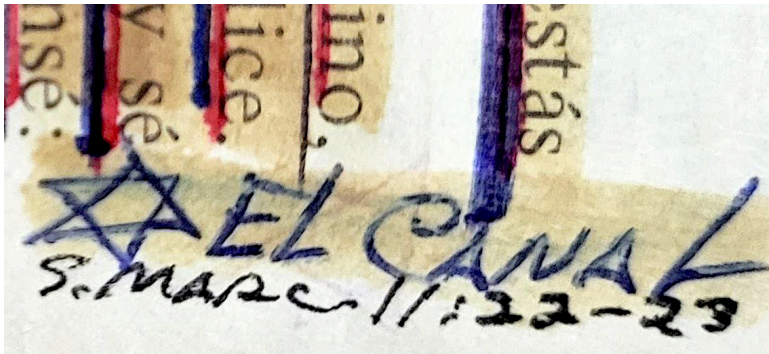 nsé:
y sé
lice.
ino,
estás
✡ EL CANAL
S. MARC 11:22-23